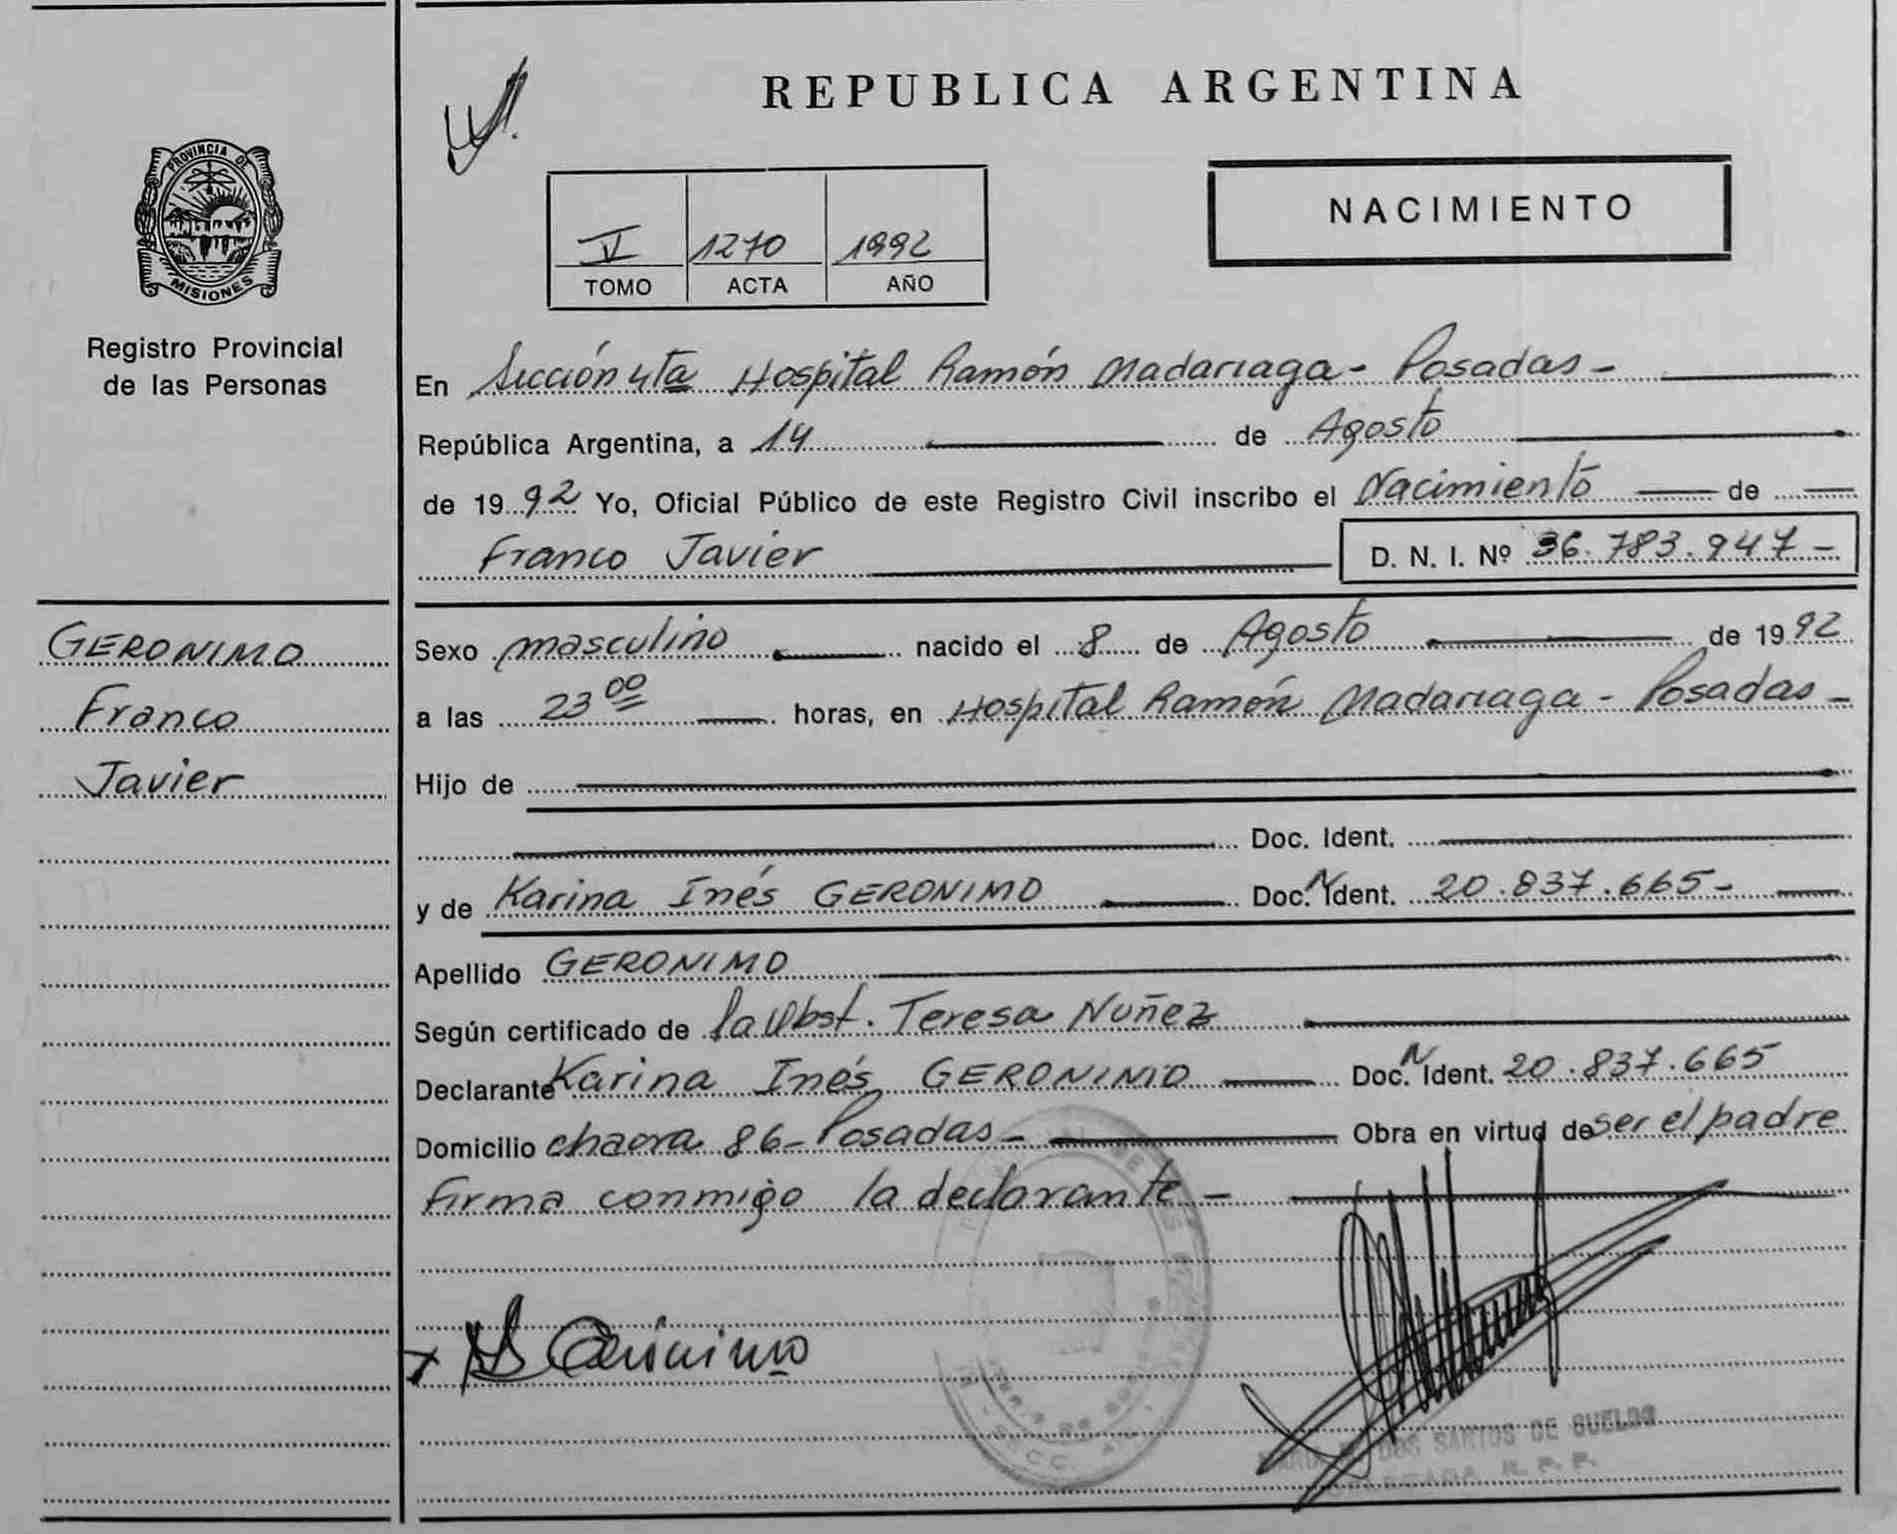 REPUBLICA ARGENTINA
PROVINCIA DE
MISIONES
Registro Provincial
de las Personas
NACIMIENTO
V 1270 1992
TOMO ACTA AÑO
En Sección 4ta Hospital Ramón Madariaga - Posadas -
República Argentina, a 14 de Agosto
de 1992 Yo, Oficial Público de este Registro Civil inscribo el Nacimiento de
Franco Javier D. N. I. Nº 36.783.947 -
GERONIMO
Franco
Javier
Sexo masculino nacido el 8 de Agosto de 1992
a las 23 00 horas, en Hospital Ramón Madariaga - Posadas -
Hijo de
Doc. Ident.
y de Karina Inés GERONIMO Doc. N Ident. 20.837.665 -
Apellido GERONIMO
Según certificado de la Obst. Teresa Nuñez
Declarante Karina Inés GERONIMO Doc. N Ident. 20.837.665
Domicilio chacra 86 - Posadas - Obra en virtud de ser el padre
Firma conmigo la declarante -
Gerónimo
DOS SANTOS DE BUELOS